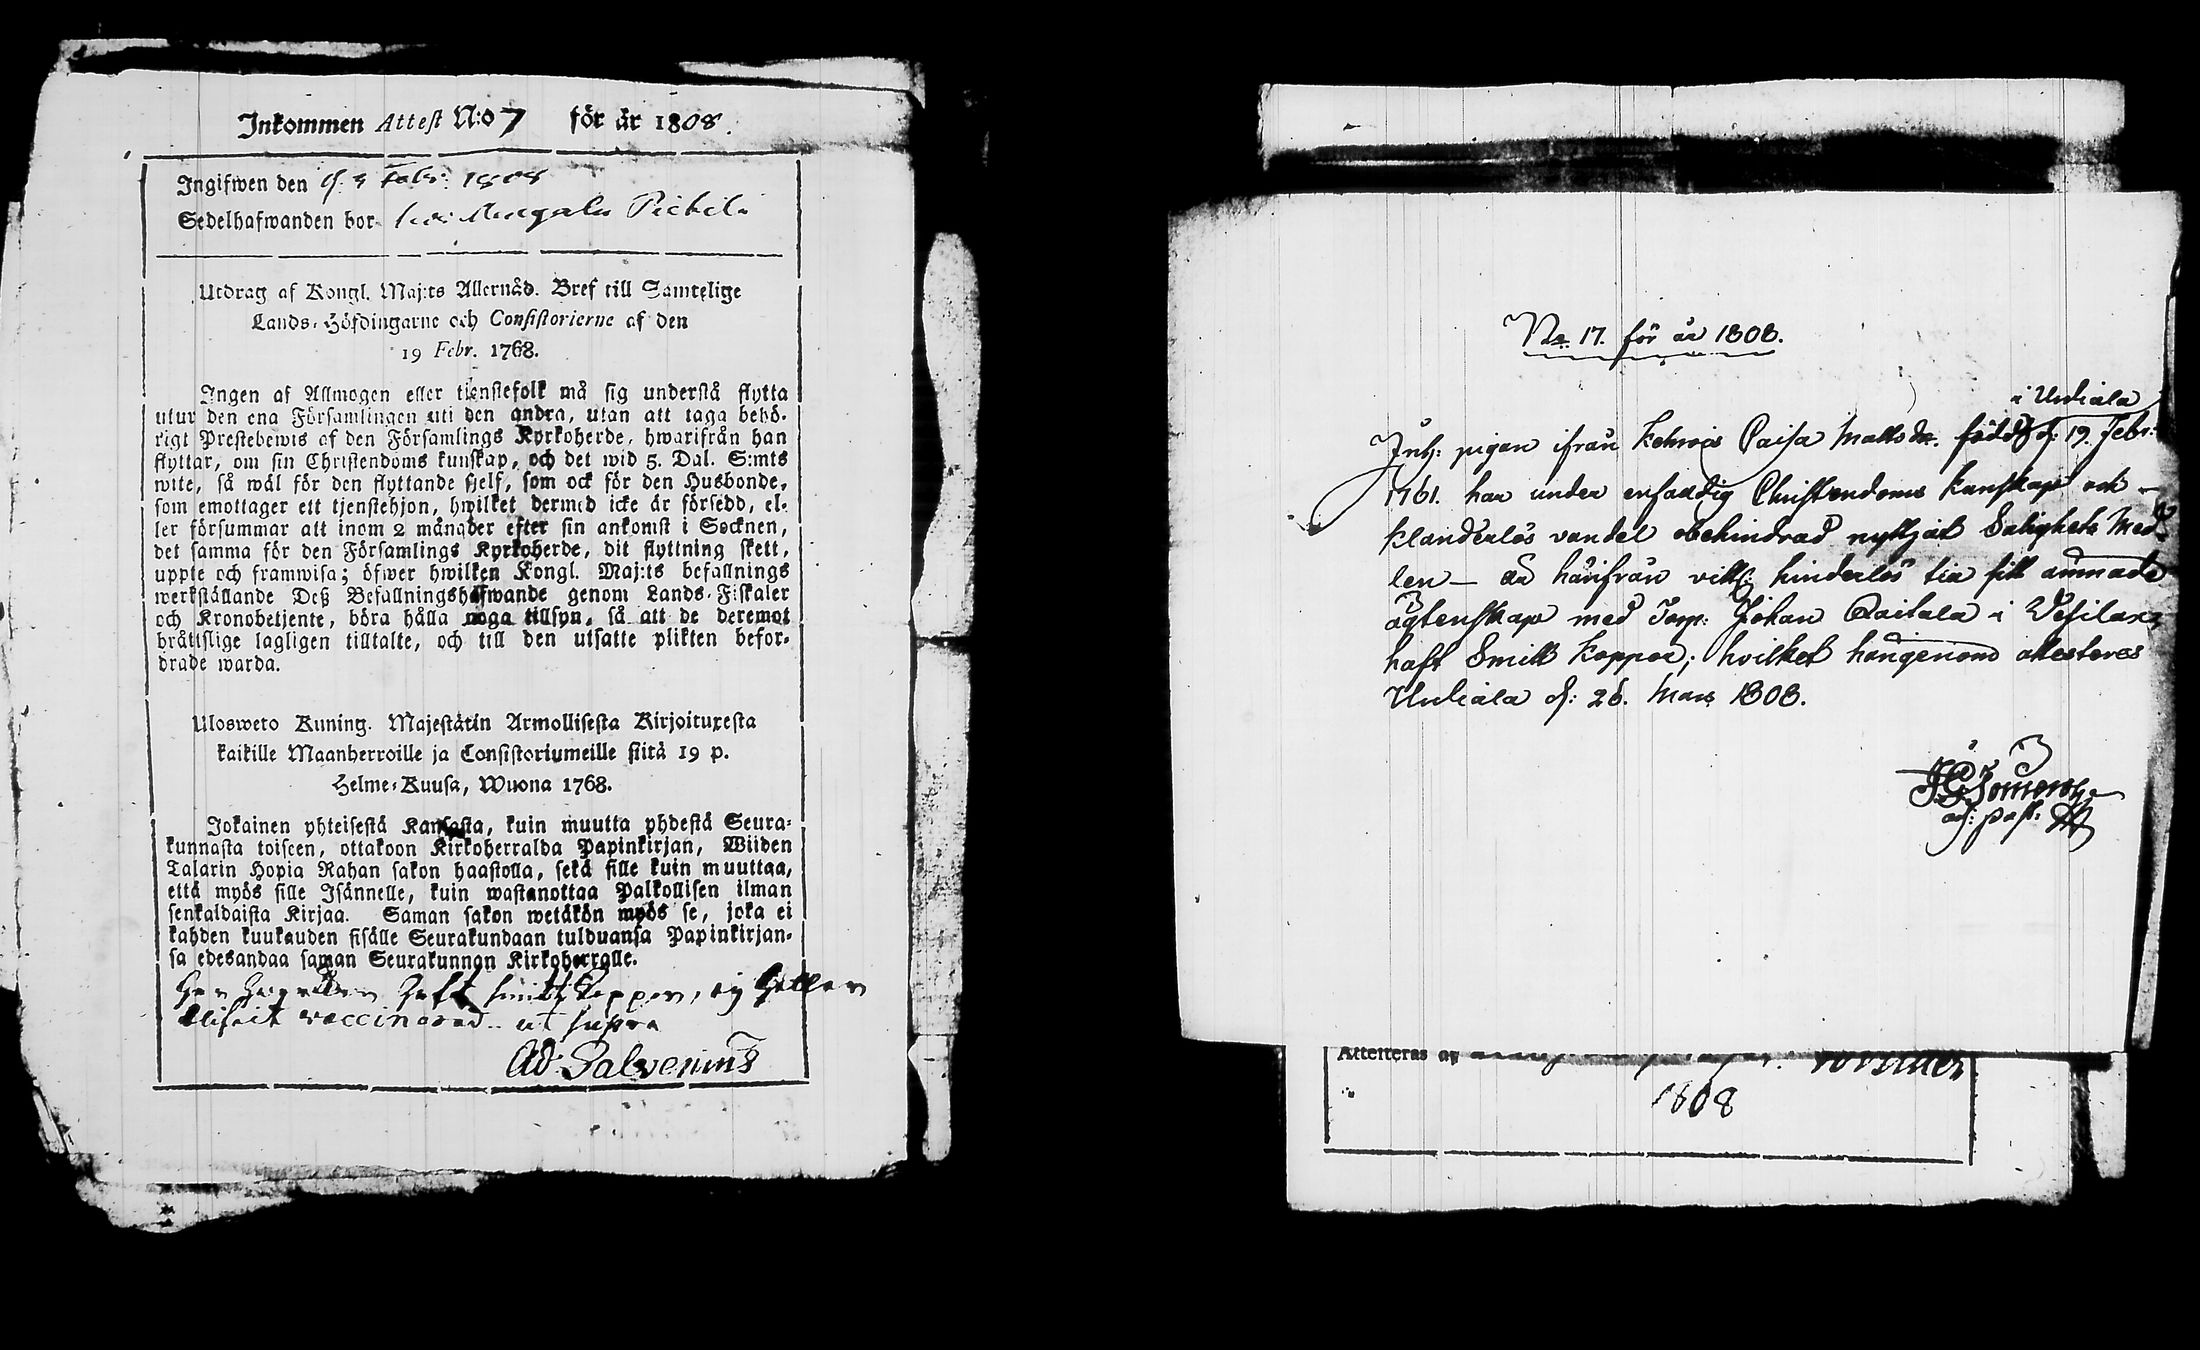 Inkommen Attest N:o 7 för år 1808.
Ingifwen den d. 3 Febr: 1808
Sedelhafwanden bor
Utdrag af Kongl. Maj:ts Allernåd. Bref till Samtelige
Lands-Höfdingarne och Consistorierne af den
19 Febr. 1768.
Ingen af Allmogen eller tienstefolk må sig understå flytta
utur den ena Församlingen uti den andra, utan att taga behö-
rigt Prestebewis af den Församlings Kyrkoherde, hwarifrån han
flyttar, om sin Christendoms kunskap, och det wid 5. Dal. S:mts
wite, så wäl för den flyttande sjelf, som ock för den Husbonde,
som emottager ett tjenstehjon, hwilket dermed icke är försedd, el-
ler försummar att inom 2 månader efter sin ankomst i Socknen,
det samma för den Församlings Kyrkoherde, dit flyttning skett,
uppte och framwisa; öfwer hwilken Kongl. Maj:ts befallnings
werkställande Deß Befallningshafwande genom Lands-Fiskaler
och Kronobetjente, böra hålla noga tillsyn, så att de deremot
bråttslige lagligen tilltalte, och till den utsatte plikten befor-
drade warda.
Ulosweto Kuning. Majestätin Armollisesta Kirjoituxesta
kaikille Maanherroille ja Consistoriumeille siitä 19 p.
Helme-Kuusa, Wuona 1768.
Jokainen yhteisestä Kansasta, kuin muutta yhdestä Seura-
kunnasta toiseen, ottakoon Kirkoherralda Papinkirjan, Wiiden
Talarin Hopia Rahan sakon haastolla, sekä sille kuin muuttaa,
että myös sille Isännelle, kuin wastanottaa Palkollisen ilman
senkaldaista Kirjaa. Saman sakon wetäkön myös se, joka ei
kahden kuukauden sisälle Seurakundaan tulduansa Papinkirjan-
sa edesandaa saman Seurakunnan Kirkoherralle.
haft smitt Koppor, ej heller
blifvit vaccinerad. ut supra
Ad: Salvenius
No 17. för år 1808.
i Urdiala
Inh: pigan ifrån Kehrois Caisa Matts dr. född d: 19. Febr:
1761. har under enfaldig Christendoms kunskap och –
klanderlös vandel obehindrad nyttjat Salighets Med-
len – är härifrån hinderlös til sitt ämnade
ägtenskap med Torp: Johan Qvitala i Vesilax,
haft Smitt Koppor; hvilket härigenom attesteras
Urdiala d: 26. Mars 1808.
adj: past:
Attesteras af
1808